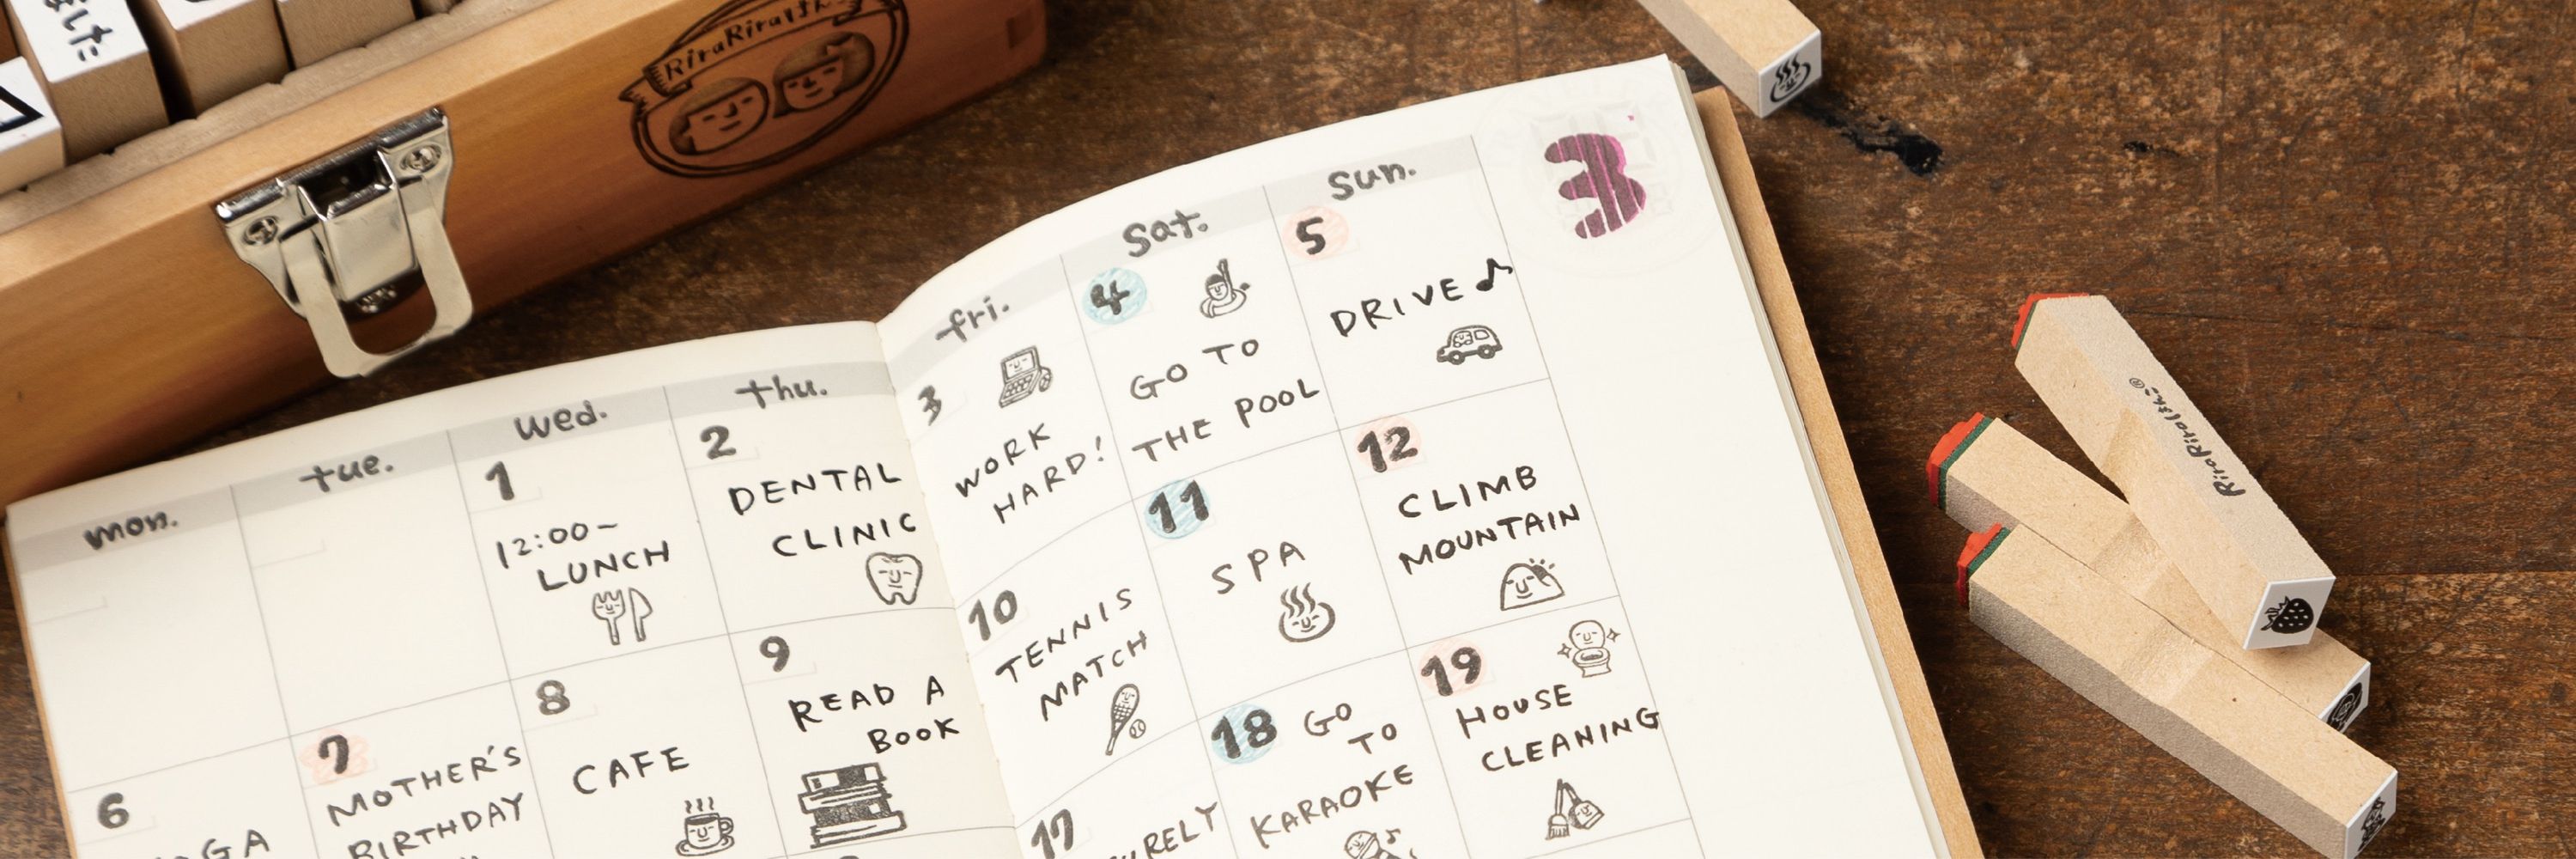 RiraRira
3
mon.
tue.
wed.
thu.
fri.
sat.
sun.
1
12:00~
LUNCH
2
DENTAL
CLINIC
3
WORK
HARD!
4
GO TO
THE POOL
5
DRIVE♪
6
7
MOTHER'S
BIRTHDAY
8
CAFE
9
READ A
BOOK
10
TENNIS
MATCH
11
SPA
12
CLIMB
MOUNTAIN
17
18
GO
TO
KARAOKE
19
HOUSE
CLEANING